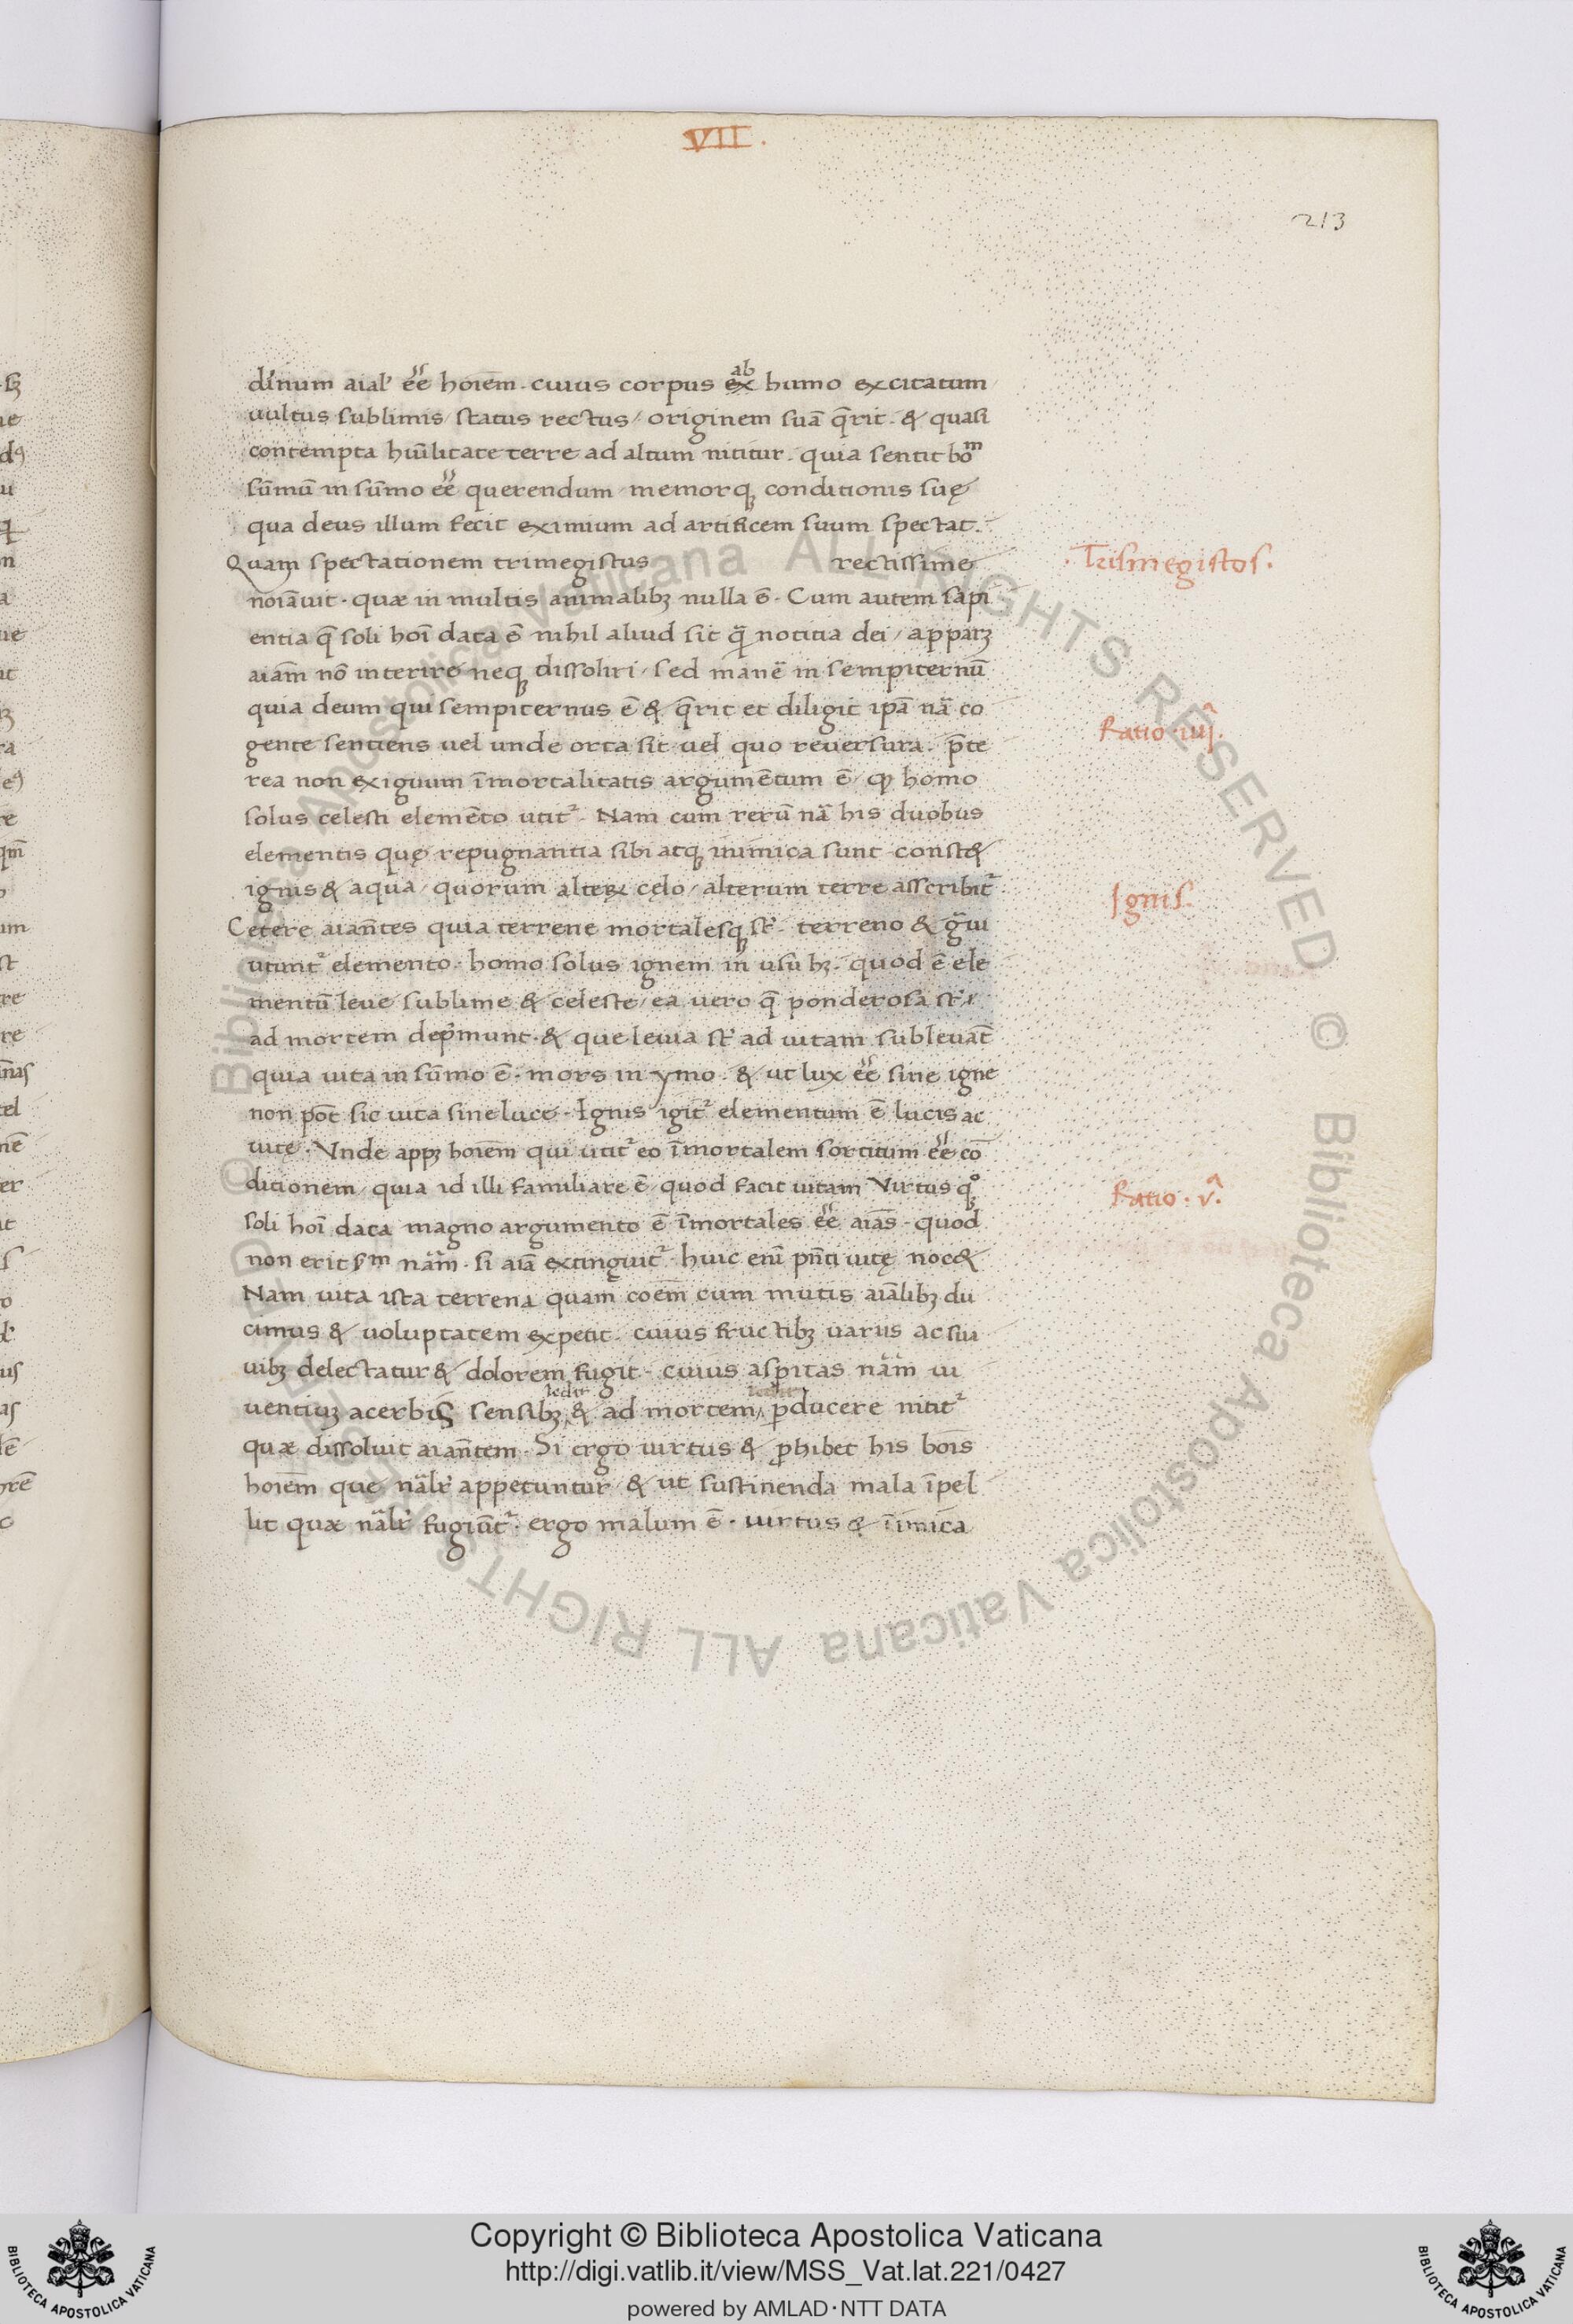 VII.
213
diuinum aial' ēē hoiem. cuius corpus ab ex humo excitatum
uultus sublimis / status rectus / originem suā q̄rit. & quasi
contempta hūilitate terre ad altum nititur. quia sentit boᵐ
sūmū in sūmo ēē querendum memorq; conditionis suę
qua deus illum fecit eximium ad artificem suum spectat.
Quam spectationem trimegistus rectissime
·Trismegistos·
noiāuit. quæ in multis animalibꝫ nulla ē. Cum autem sapi
entia q̄ soli hoī data ē nihil aliud sit q̄ notitia dei / apparꝫ
aiam nō interire neq; dissolui / sed manē in sempiternū
quia deum qui sempiternus ē & q̄rit et diligit ipā nā co
gente sentiens uel unde orta sit uel quo reuersura. p̄te
Ratio iiij.
rea non exiguum īmortalitatis argumētum ē / qꝫ homo
solus celesti elemēto utit². Nam cum rerū nā his duobus
elementis quę repugnantia sibi atq; inimica sunt const&
ignis & aqua / quorum alteꝝ cęlo / alterum terre asscribit²
Ignis.
Cetere aiantes quia terrene mortalesq; st̄. terreno & g̈ui
utunt² elemento. homo solus ignem in usu hꝫ. quod ē ele
mentū leue sublime & celeste / ea uero q̄ ponderosa st̄
ad mortem dep̄munt. & que leuia st̄ ad uitam subleuāt
quia uita in sūmo ē. mors in ymo. & ut lux ēē sine igne
non pōt sic uita sine luce. Ignis igit² elementum ē lucis ac
uitę. Vnde appꝫ hoiem qui utit² eo īmortalem sortitum ēē cō
ditionem / quia id illi familiare ē / quod facit uitam Virtus q;°
Ratio. v.ᵃ
soli hoī data magno argumento ē īmortales ēē aias. quod
non erit sᵐ nām. si aiā extinguit². huic enī pn̄ti uitę noc&
Nam uita ista terrena quam coēm cum mutis aīalibꝫ du
cimus & uoluptatem expetit. cuius fructibꝫ uariis ac sua
uibꝫ delectatur & dolorem fugit. cuius asp̱itas nām ui
uentiuꝫ acerbis sensibꝫ ledit & ad mortem p̱ducere nitit²
quæ dissoluit aiantem. Si ergo uirtus & p̱hibet his bois
hoiem que nālr̄ appetuntur & ut sustinenda mala īpel
lit quæ nālr̄ fugiūt². ergo malum ē. uirtus & iimica
Copyright © Biblioteca Apostolica Vaticana
http://digi.vatlib.it/view/MSS_Vat.lat.221/0427
powered by AMLAD·NTT DATA
BIBLIOTECA APOSTOLICA VATICANA
BIBLIOTECA APOSTOLICA VATICANA
© Biblioteca Apostolica Vaticana ALL RIGHTS RESERVED © Biblioteca Apostolica Vaticana ALL RIGHTS